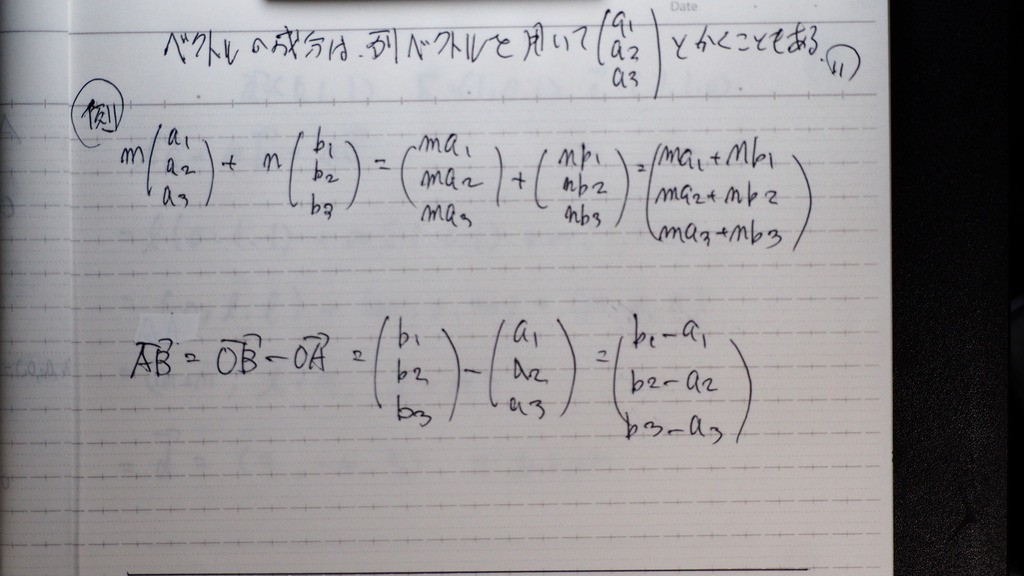 Date
ベクトルの成分は、列ベクトルを用いて(a1 a2 a3)とかくこともある。
例
m(a1 a2 a3) + n(b1 b2 b3) = (ma1 ma2 ma3) + (nb1 nb2 nb3) = (ma1+nb1 ma2+nb2 ma3+nb3)
AB = OB - OA = (b1 b2 b3) - (a1 a2 a3) = (b1-a1 b2-a2 b3-a3)